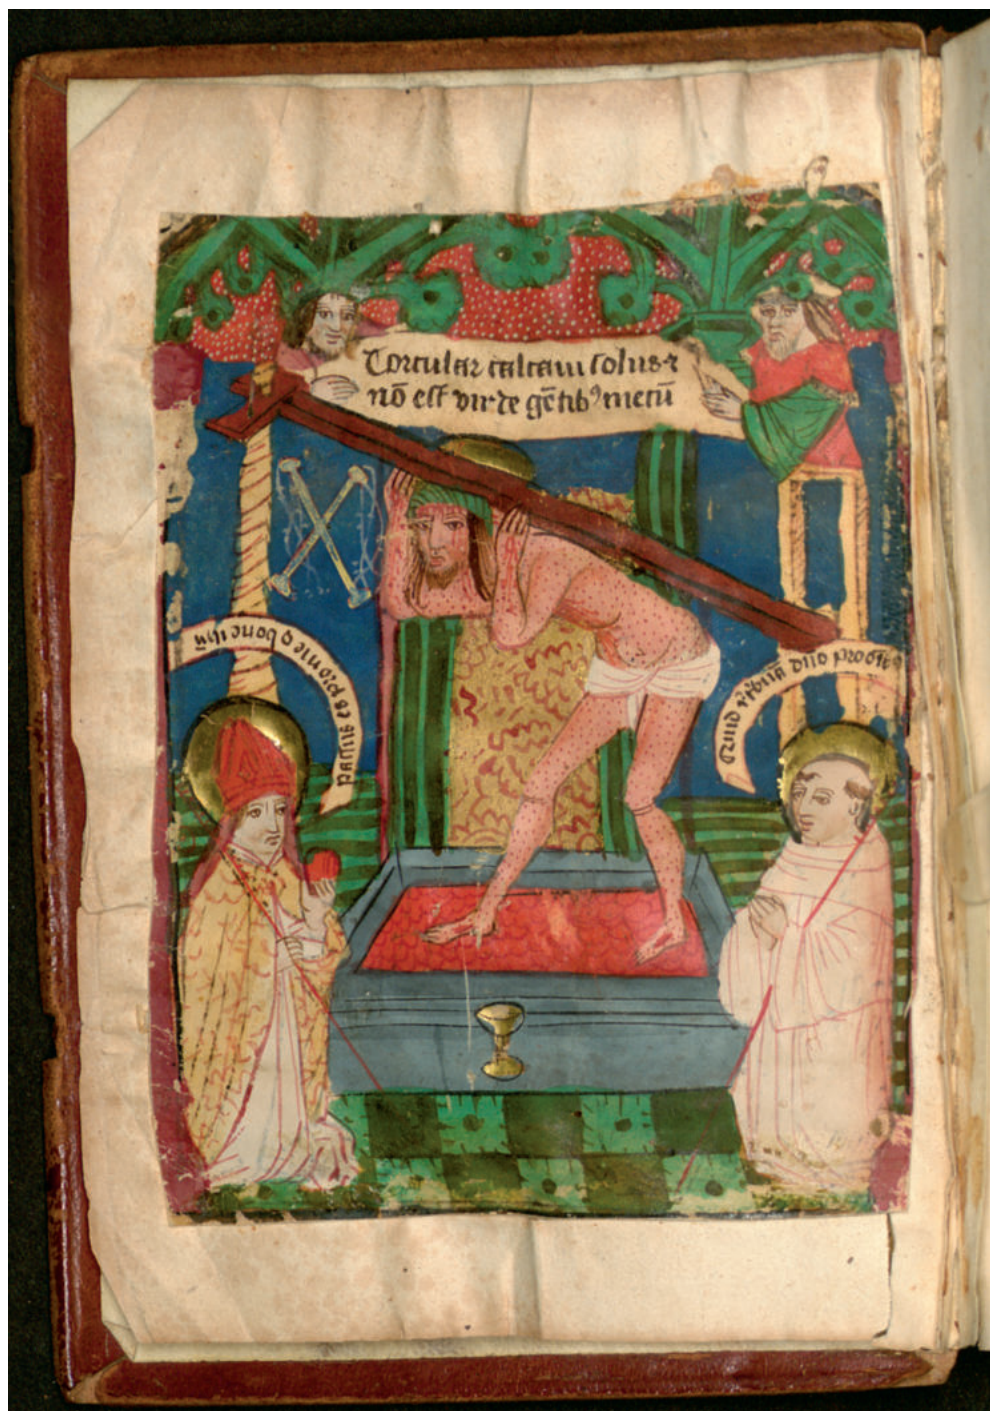 Torcular calcaui solus ⁊
nō est vir de gētibꝰ mecū
passus es pro me o bone ihū
Quid rͤtribuā dño pro oībꝰ